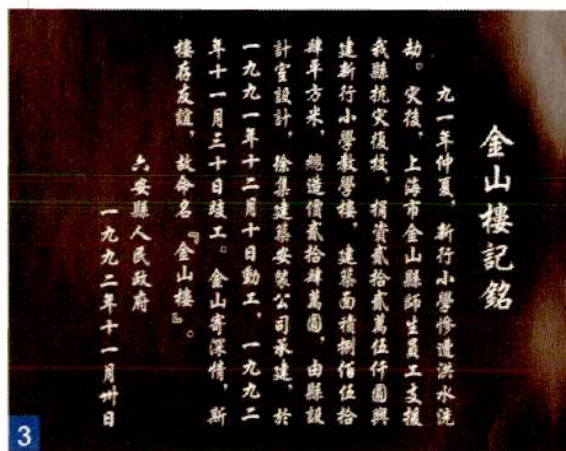 金山樓記銘
九一年仲夏，新行小學慘遭洪水洗
劫。災後，上海市金山縣師生員工支援
我縣抗災復校，捐資貳拾貳萬伍仟圓興
建新行小學教學樓，建築面積捌佰伍拾
肆平方米，總造價貳拾肆萬圓，由縣設
計室設計，徐集建築安裝公司承建，於
一九九一年十二月十日動工，一九九二
年十一月三十日竣工。金山寄深情，斯
樓存友誼，故命名『金山樓』。
六安縣人民政府
一九九二年十一月卅日
3